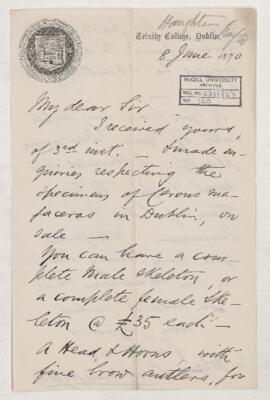 Haughton
Trinity College, Dublin.
8 June 1870
McGILL UNIVERSITY
ARCHIVES
ACC. NO.
REF.
My dear Sir
I received yours,
of 3rd inst. I made in-
quiries respecting the
specimens of Cervus me-
gaceros in Dublin, on
sale —
You can have a com-
plete Male Skeleton, or
a complete female Ske-
leton @ £35 each —
A Head & Horns with
fine brow antlers, for